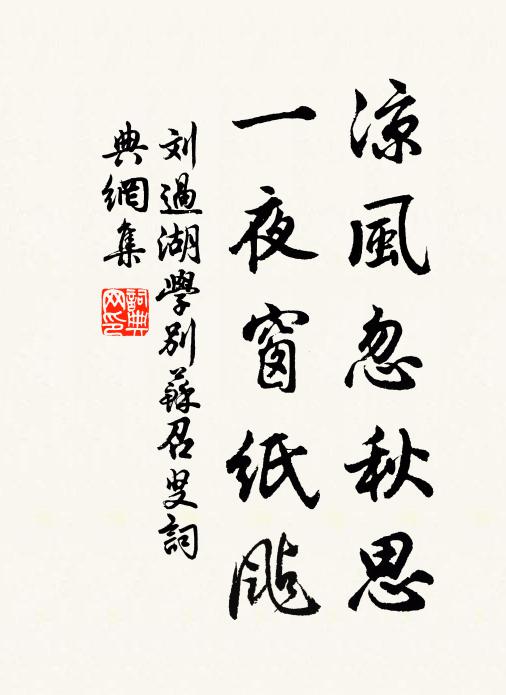 凉風忽秋思
一夜窗紙颭
刘過湖學别蘇召叟詞
典網集
詞典網印